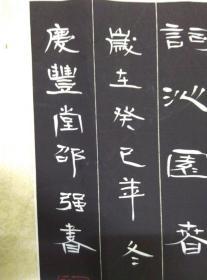 詞沁園春
歲在癸巳年冬
慶豐堂邵强書